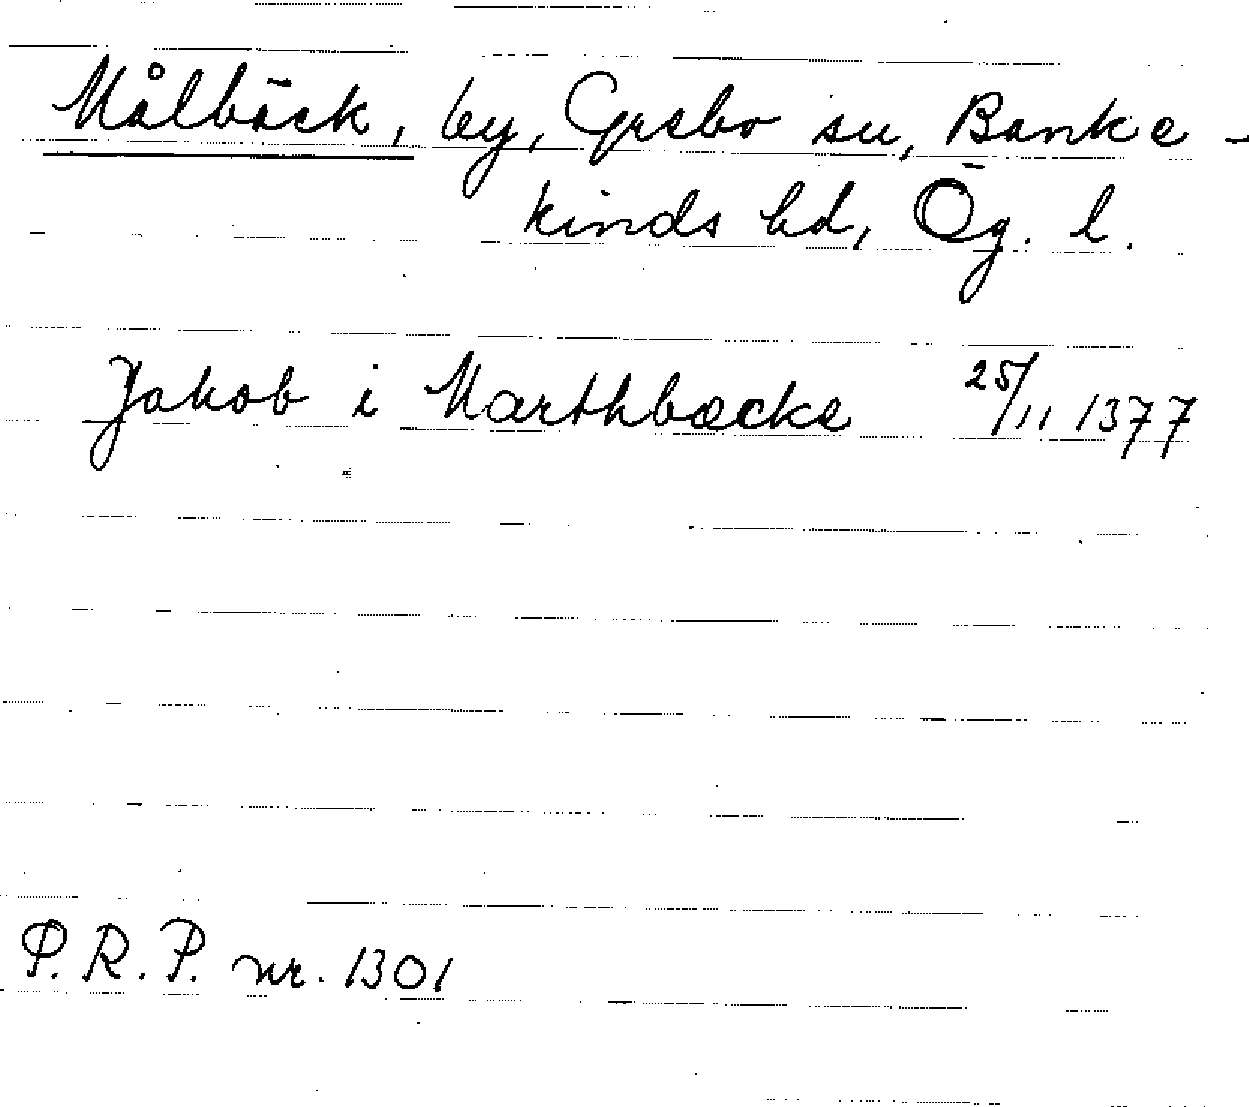 Målbäck, by, Grebo sn, Banke-
kinds hd, Ög. l.
Jakob i Marthbæcke 25/11 1377
P.R.P. nr. 1301